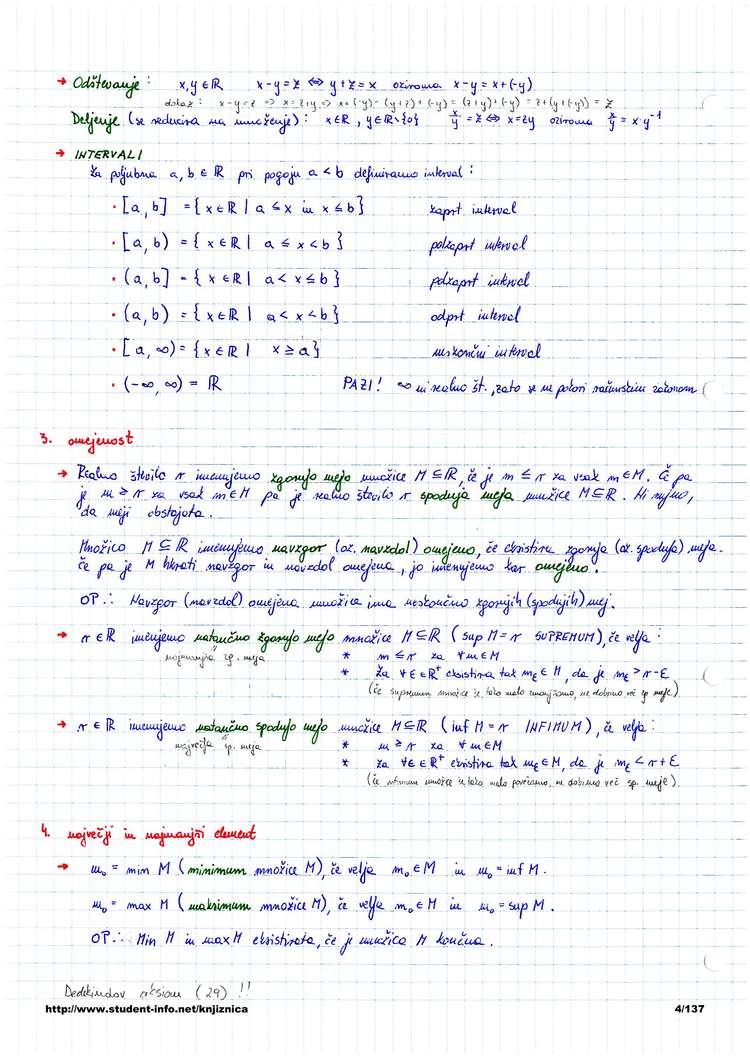 → Odštevanje : x,y ∈ ℝ x-y=z ⇔ y+z=x oziroma x-y = x+(-y)
dokaz : x-y=z ⇒ x=z+y ⇒ x+(-y) = (z+y)+(-y) = z+(y+(-y)) = z
Deljenje (se reducira na množenje) : x∈ℝ, y∈ℝ\{0} x/y = z ⇔ x=zy oziroma x/y = x·y⁻¹
→ INTERVALI
Za poljubna a, b ∈ ℝ pri pogoju a < b definiramo interval :
· [a, b] = { x ∈ ℝ | a ≤ x in x ≤ b } zaprt interval
· [a, b) = { x ∈ ℝ | a ≤ x < b } polzaprt interval
· (a, b] = { x ∈ ℝ | a < x ≤ b } polzaprt interval
· (a, b) = { x ∈ ℝ | a < x < b } odprt interval
· [a, ∞) = { x ∈ ℝ | x ≥ a } neskončni interval
· (-∞, ∞) = ℝ PAZI! ∞ ni realno št., zato se ne pokori računskim zakonom
3. omejenost
→ Realno število r imenujemo zgornjo mejo množice M ⊆ ℝ, če je m ≤ r za vsak m ∈ M. Če pa
je m ≥ r za vsak m ∈ M pa je realno število r spodnja meja množice M ⊆ ℝ. Ni nujno,
da meji obstajata.
Množico M ⊆ ℝ imenujemo navzgor (oz. navzdol) omejeno, če eksistira zgornja (oz. spodnja) meja.
Če pa je M hkrati navzgor in navzdol omejena, jo imenujemo kar omejeno.
OP.: Navzgor (navzdol) omejena množica ima neskončno zgornjih (spodnjih) mej.
→ r ∈ ℝ imenujemo natančno zgornjo mejo množice M ⊆ ℝ (sup M = r SUPREMUM), če velja :
najmanjša zg. meja * m ≤ r za ∀ m ∈ M
* Za ∀ε∈ℝ⁺ eksistira tak m_ε ∈ M, da je m_ε > r-ε
(če supremum množice še tako malo zmanjšamo, ne dobimo več zg meje)
→ r ∈ ℝ imenujemo natančno spodnjo mejo množice M ⊆ ℝ (inf M = r INFIMUM), če velja :
največja sp. meja * m ≥ r za ∀ m ∈ M
* za ∀ε∈ℝ⁺ eksistira tak m_ε ∈ M, da je m_ε < r+ε
(če infimum množice še tako malo povečamo, ne dobimo več sp. meje).
4. največji in najmanjši element
→ m₀ = min M (minimum množice M), če velja m₀ ∈ M in m₀ = inf M.
m₀ = max M (maksimum množice M), če velja m₀ ∈ M in m₀ = sup M.
OP.: Min M in max M eksistirata, če je množica M končna.
Dedekindov aksiom (29) !!
http://www.student-info.net/knjiznica 4/137